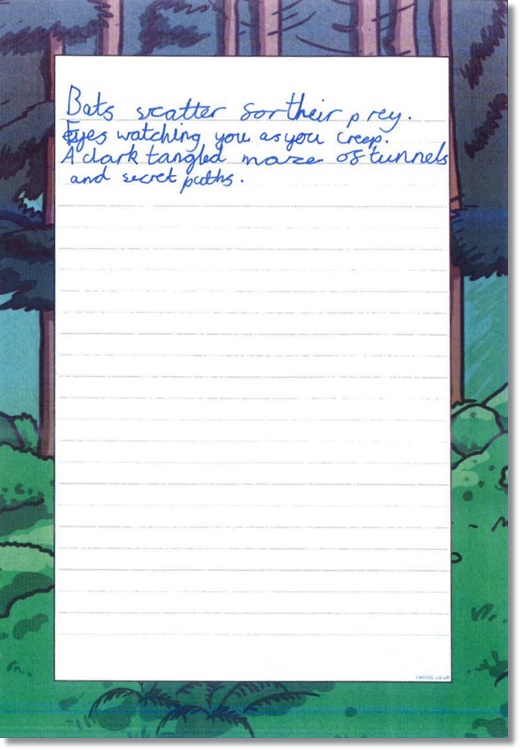 Bats scatter for their prey.
Eyes watching you as you creep.
A dark tangled maze of tunnels
and secret paths.
twinkl.co.uk